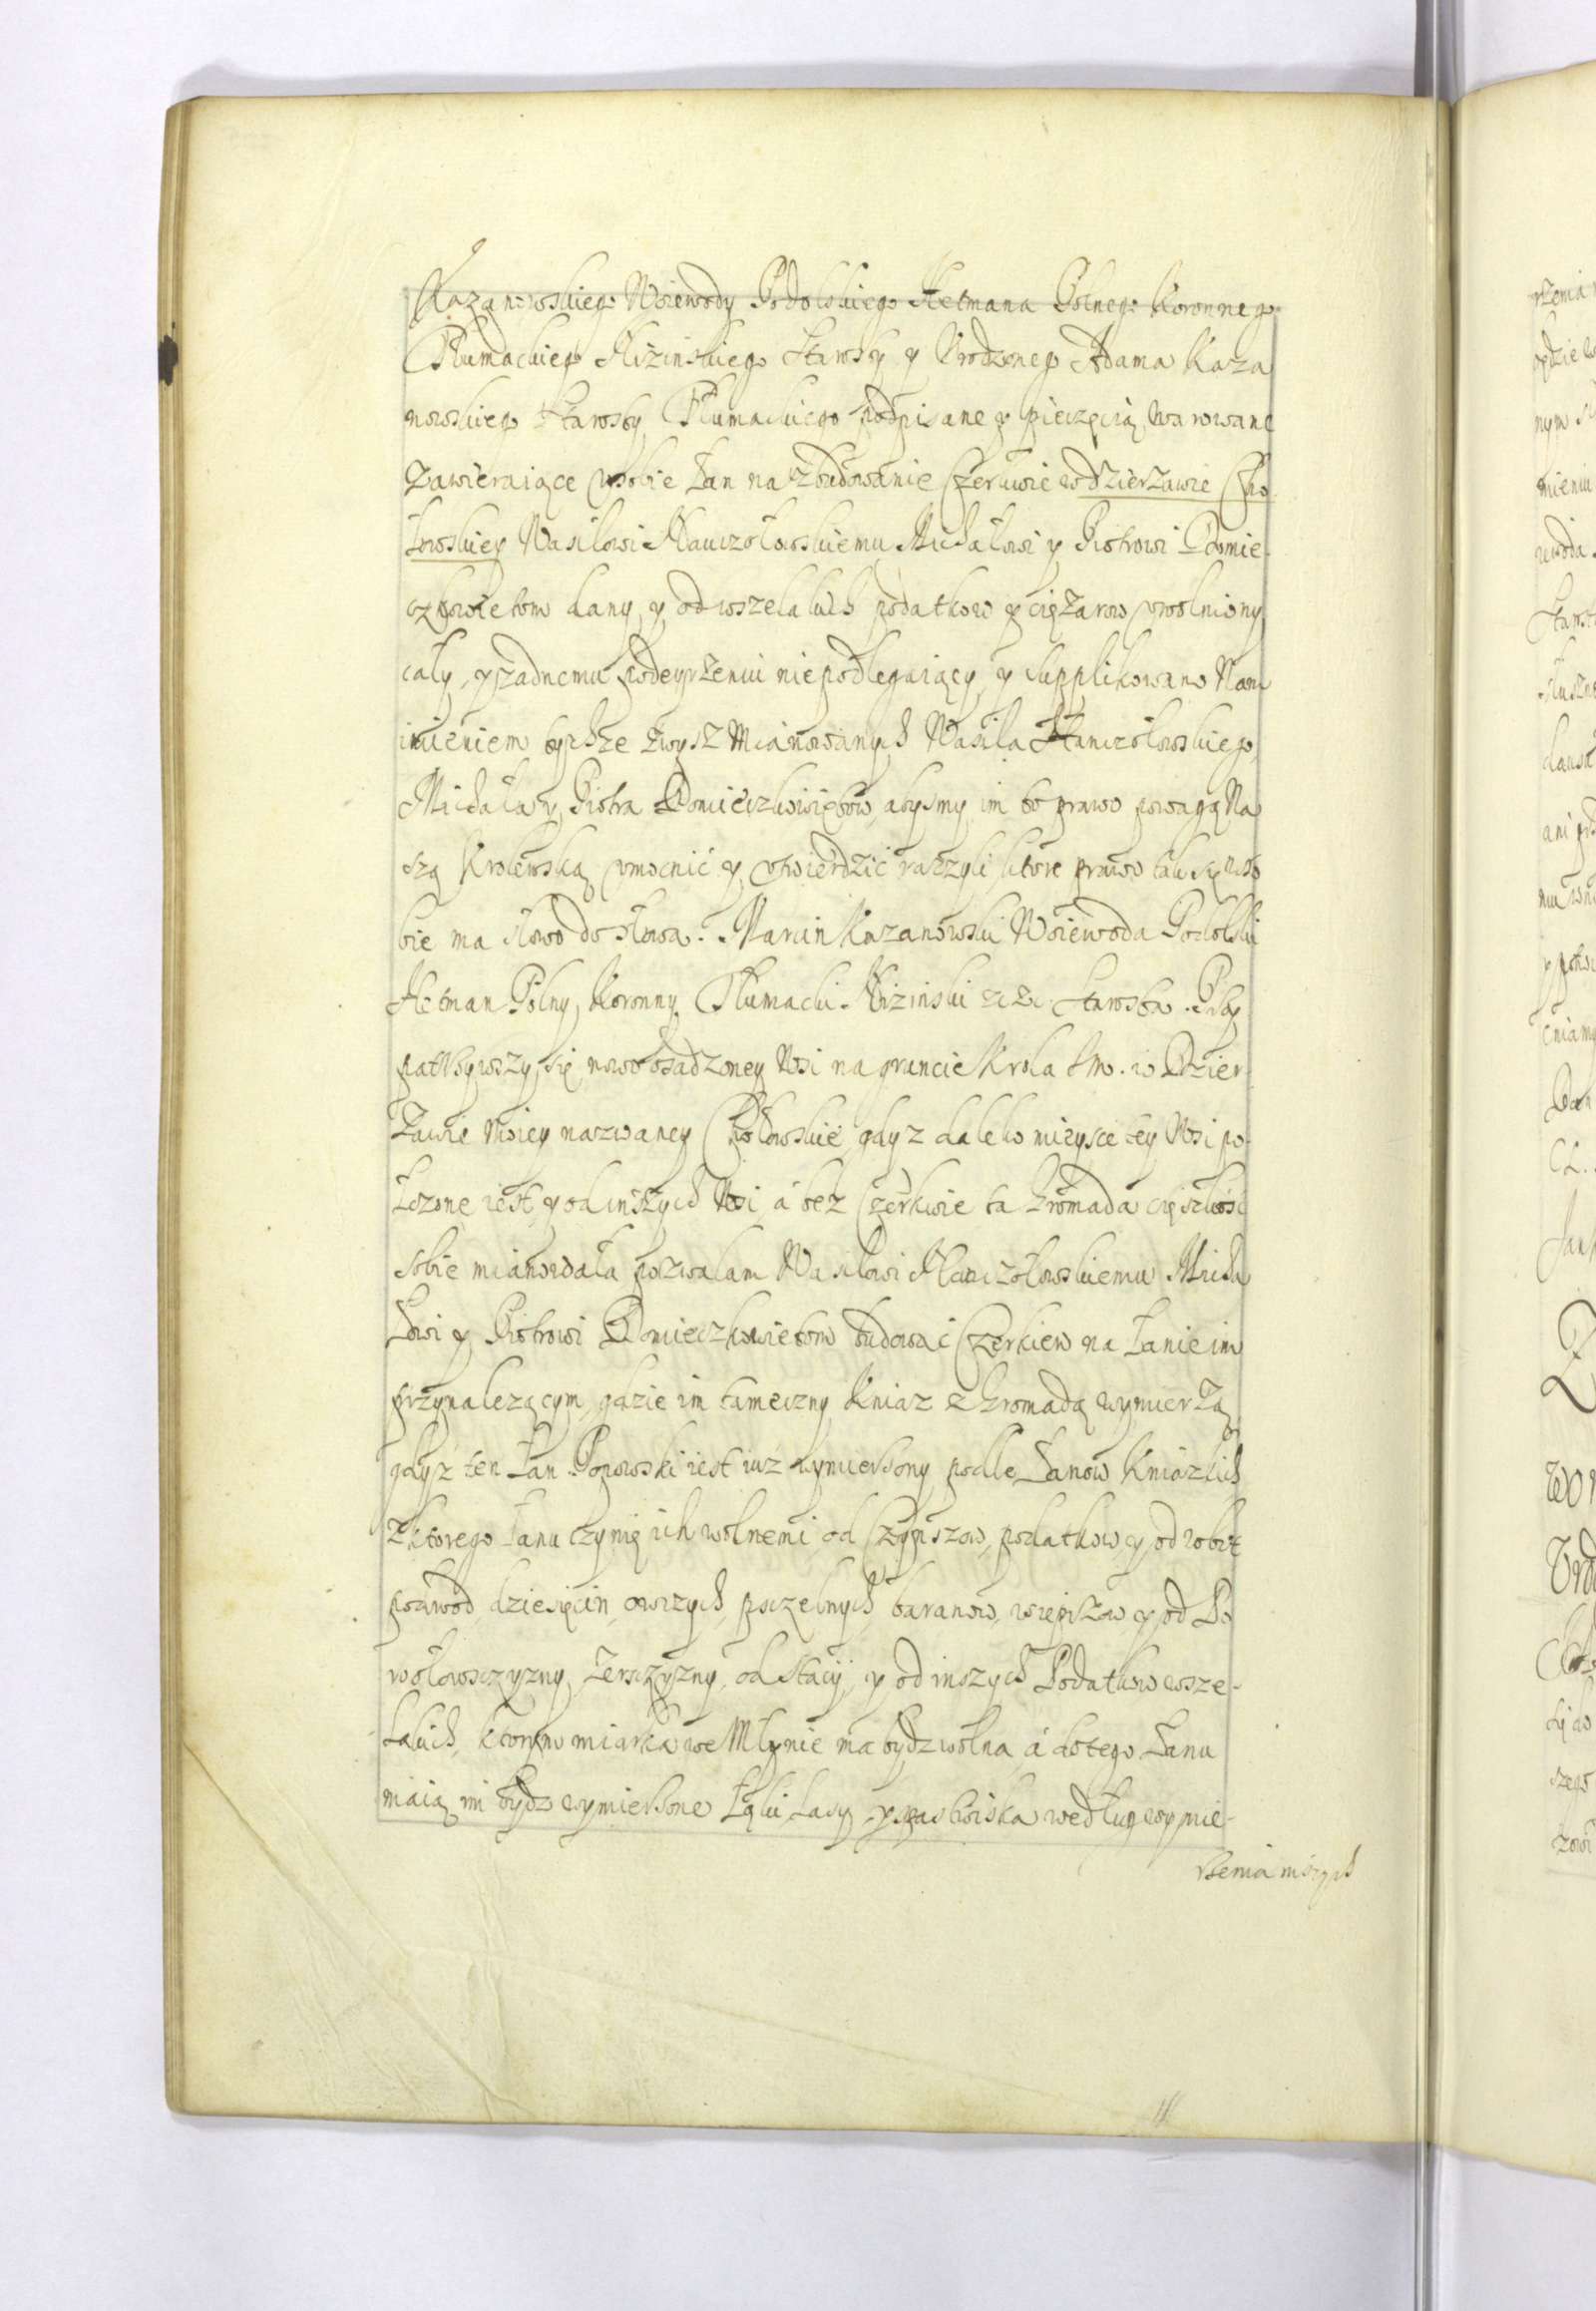 Kazanowskiego Woiewody Podolskiego Hetmana Polnego Koronnego
Tłumackiego Niżinskiego Starosty y Vrodzonego Adama Kaza
nowskiego Starosty Tłumackiego podpisane y pieczęcią warowane
Zawieraiące wsobie Łan na zbudowanie Czerkwie w dzierżawie
łowskiey Wasilowi Michałowi y Piotrowi Domie
dany y od wszelakich podatkow y ciężarow vwolniony
cały, y żadnemu podeyrzeniu niepodlegaiący, y supplikowano Nam
imieniem tychże zwysz mianowanych Wasila
Michała y Piotra abysmy im to prawo powagą Na
szą Krolewską vmocnić y vtwierdzić raczyli ktore prawo tak się wso
bie ma słowo do słowa. Marcin Kazanowski Woiewoda Podolski
Hetman Polny Koronny Tłumacki Niżinski Starosta. Przy
patrzywszy się nowo osadzoney Wsi na gruncie Krola w Dzier
żawie moiey nazwaney gdyz daleko mieysce tey Wsi po
łozone iest y od inszych Wsi á bez Czerkwie ta Gromada cięszkość
sobie mianowała pozwalam Wasilowi Micha
łowi y Piotrowi budować Czerkiew na Łanie im
przynalezącym, gdzie im tameczny Kniaz z Gromadą wymierzą
gdyz ten Łan Popowski iest iuz wymierzony podle Łanow Kniazkich
z ktorego Łanu czynię ich wolnemi od Czynszow, podatkow, y od robot
powod dziesięcin owczych, pszczelnych, baranow, wieprzow y od Po
wołowszczyzny, żerszczyzny, od Stacij, y od inszych Podatkow wsze-
lakich, ktorym miarka we Młynie ma bydz wolna á do tego Łanu
maią im bydz wymierzone Łąki Lasy y pastwiska według wymie-
rzenia inszych